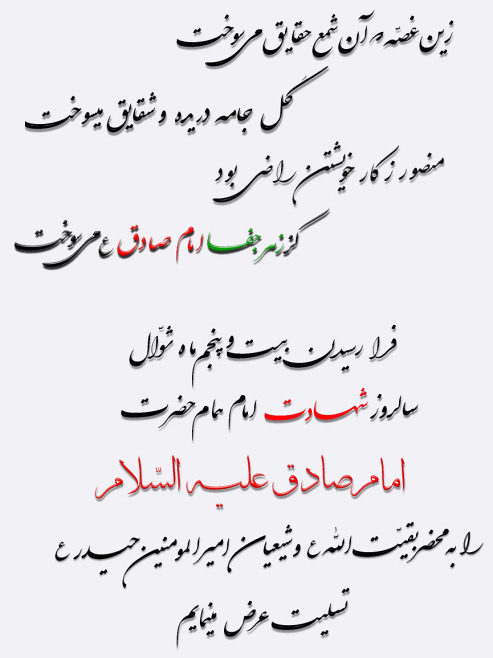 زین غصّه که آن شمع حقایق می‌سوخت
گل جامه دریده و شقایق میسوخت
منصور ز کار خویشتن راضی بود
کز زهر جفا امام صادق ع می‌سوخت
فرا رسیدن بیست و پنجم ماه شوّال
سالروز شهادت امام همام حضرت
امام صادق علیه السّلام
را به محضر بقیّت الله ع و شیعیان امیرالمومنین حیدر ع
تسلیت عرض مینمایم